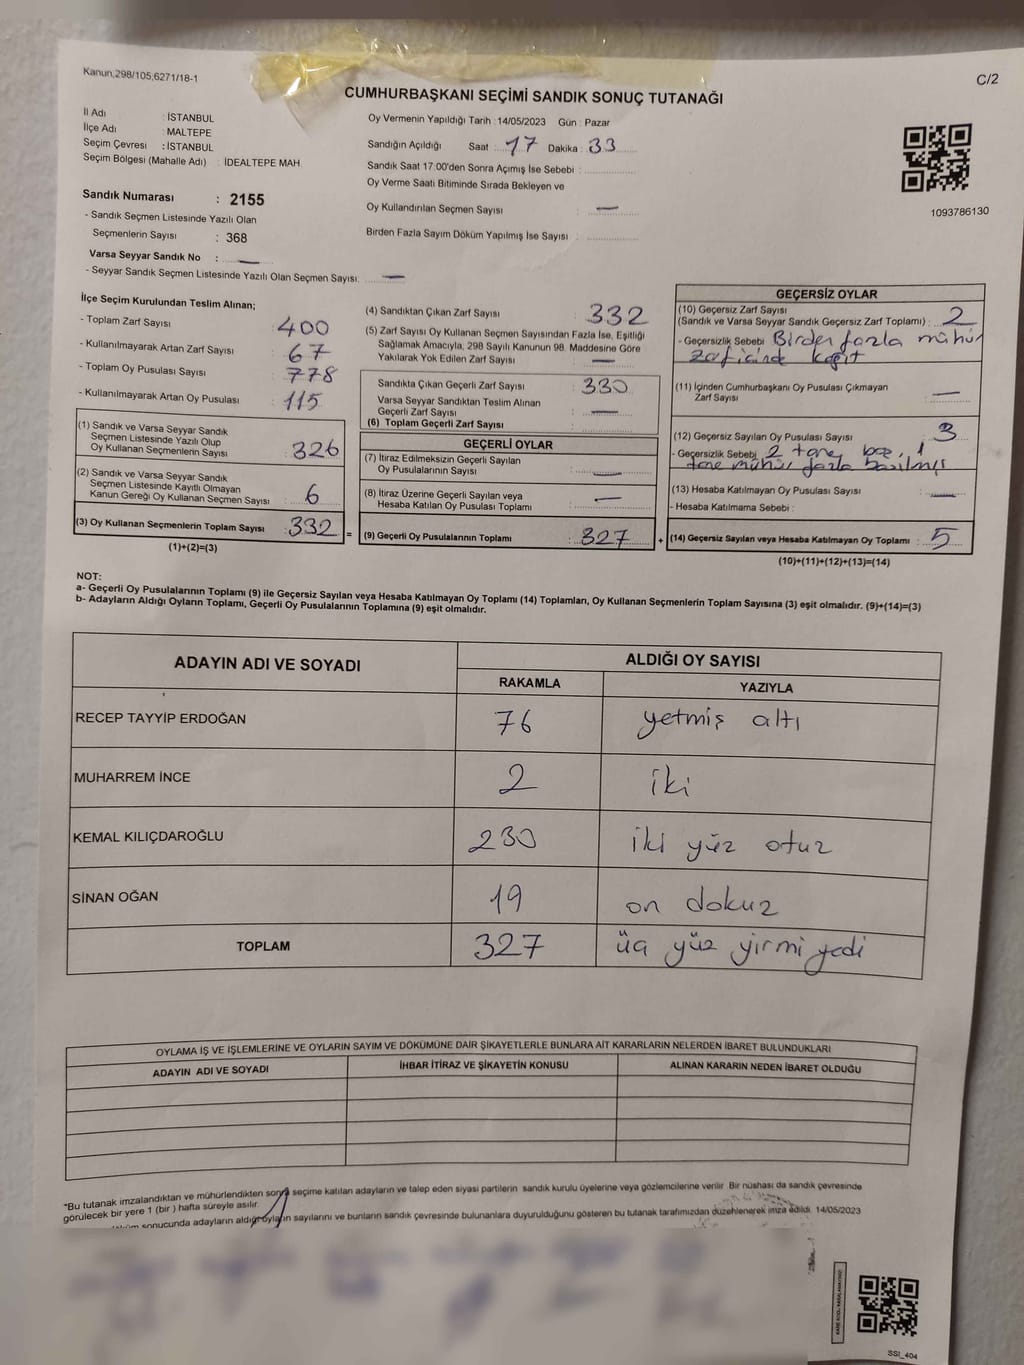 Kanun,298/105,6271/18-1
C/2
CUMHURBAŞKANI SEÇİMİ SANDIK SONUÇ TUTANAĞI
İl Adı : İSTANBUL
İlçe Adı : MALTEPE
Seçim Çevresi : İSTANBUL
Seçim Bölgesi (Mahalle Adı) : İDEALTEPE MAH.
Sandık Numarası : 2155
- Sandık Seçmen Listesinde Yazılı Olan
Seçmenlerin Sayısı : 368
Varsa Seyyar Sandık No : —
- Seyyar Sandık Seçmen Listesinde Yazılı Olan Seçmen Sayısı: —
Oy Vermenin Yapıldığı Tarih :14/05/2023 Gün : Pazar
Sandığın Açıldığı Saat : 17 Dakika : 33
Sandık Saat 17:00'den Sonra Açımış İse Sebebi :
Oy Verme Saati Bitiminde Sırada Bekleyen ve
Oy Kullandırılan Seçmen Sayısı : —
Birden Fazla Sayım Döküm Yapılmış İse Sayısı :
1093786130
İlçe Seçim Kurulundan Teslim Alınan;
- Toplam Zarf Sayısı : 400
- Kullanılmayarak Artan Zarf Sayısı : 67
- Toplam Oy Pusulası Sayısı : 778
- Kullanılmayarak Artan Oy Pusulası : 115
(1) Sandık ve Varsa Seyyar Sandık
Seçmen Listesinde Yazılı Olup
Oy Kullanan Seçmenlerin Sayısı : 326
(2) Sandık ve Varsa Seyyar Sandık
Seçmen Listesinde Kayıtlı Olmayan
Kanun Gereği Oy Kullanan Seçmen Sayısı : 6
(3) Oy Kullanan Seçmenlerin Toplam Sayısı : 332 =
(1)+(2)=(3)
(4) Sandıktan Çıkan Zarf Sayısı : 332
(5) Zarf Sayısı Oy Kullanan Seçmen Sayısından Fazla İse, Eşitliği
Sağlamak Amacıyla, 298 Sayılı Kanunun 98. Maddesine Göre
Yakılarak Yok Edilen Zarf Sayısı : —
Sandıkta Çıkan Geçerli Zarf Sayısı : 330
Varsa Seyyar Sandıktan Teslim Alınan
Geçerli Zarf Sayısı : —
(6) Toplam Geçerli Zarf Sayısı :
GEÇERLİ OYLAR
(7) İtiraz Edilmeksizin Geçerli Sayılan
Oy Pusulalarının Sayısı : —
(8) İtiraz Üzerine Geçerli Sayılan veya
Hesaba Katılan Oy Pusulası Toplamı : —
(9) Geçerli Oy Pusulalarının Toplamı : 327 +
GEÇERSİZ OYLAR
(10) Geçersiz Zarf Sayısı
(Sandık ve Varsa Seyyar Sandık Geçersiz Zarf Toplamı) : 2
- Geçersizlik Sebebi Birden fazla mühür
zarf içinde kağıt
(11) İçinden Cumhurbaşkanı Oy Pusulası Çıkmayan
Zarf Sayısı : —
(12) Geçersiz Sayılan Oy Pusulası Sayısı : 3
- Geçersizlik Sebebi 2 tane boş, 1
tane mühür fazla basılmış
(13) Hesaba Katılmayan Oy Pusulası Sayısı : —
- Hesaba Katılmama Sebebi :
(14) Geçersiz Sayılan veya Hesaba Katılmayan Oy Toplamı : 5
(10)+(11)+(12)+(13)=(14)
NOT:
a- Geçerli Oy Pusulalarının Toplamı (9) ile Geçersiz Sayılan veya Hesaba Katılmayan Oy Toplamı (14) Toplamları, Oy Kullanan Seçmenlerin Toplam Sayısına (3) eşit olmalıdır. (9)+(14)=(3)
b- Adayların Aldığı Oyların Toplamı, Geçerli Oy Pusulalarının Toplamına (9) eşit olmalıdır.
ADAYIN ADI VE SOYADI ALDIĞI OY SAYISI
RAKAMLA YAZIYLA
RECEP TAYYİP ERDOĞAN 76 yetmiş altı
MUHARREM İNCE 2 iki
KEMAL KILIÇDAROĞLU 230 iki yüz otuz
SİNAN OĞAN 19 on dokuz
TOPLAM 327 üç yüz yirmi yedi
OYLAMA İŞ VE İŞLEMLERİNE VE OYLARIN SAYIM VE DÖKÜMÜNE DAİR ŞİKAYETLERLE BUNLARA AİT KARARLARIN NELERDEN İBARET BULUNDUKLARI
ADAYIN ADI VE SOYADI İHBAR İTİRAZ VE ŞİKAYETİN KONUSU ALINAN KARARIN NEDEN İBARET OLDUĞU
*Bu tutanak imzalandıktan ve mühürlendikten sonra seçime katılan adayların ve talep eden siyasi partilerin sandık kurulu üyelerine veya gözlemcilerine verilir. Bir nüshası da sandık çevresinde
görülecek bir yere 1 (bir ) hafta süreyle asılır.
sonucunda adayların aldığı oyların sayılarını ve bunların sandık çevresinde bulunanlara duyurulduğunu gösteren bu tutanak tarafımızdan düzenlenerek imza edildi. 14/05/2023
SSI_404